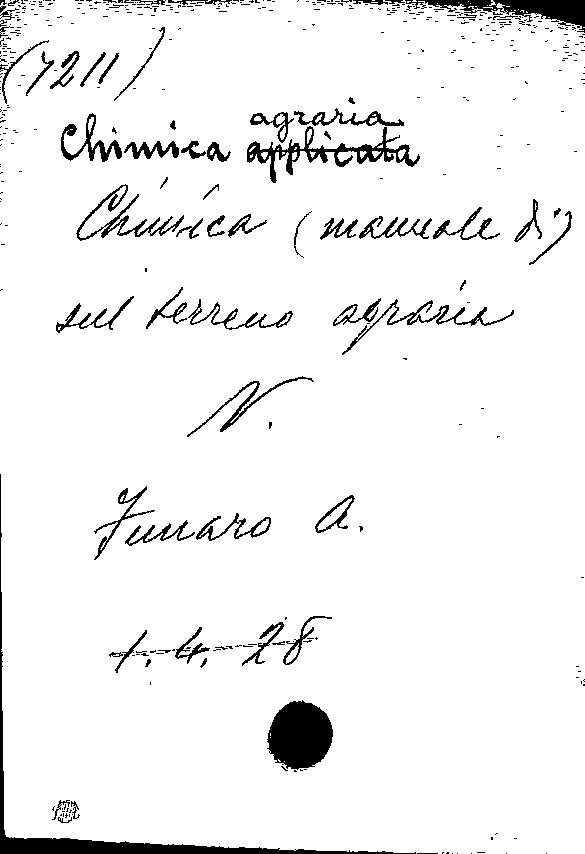 (7211)
agraria
Chimica applicata
Chimica (manuale di)
sul terreno agraria
V.
Funaro A.
1. 4. 28